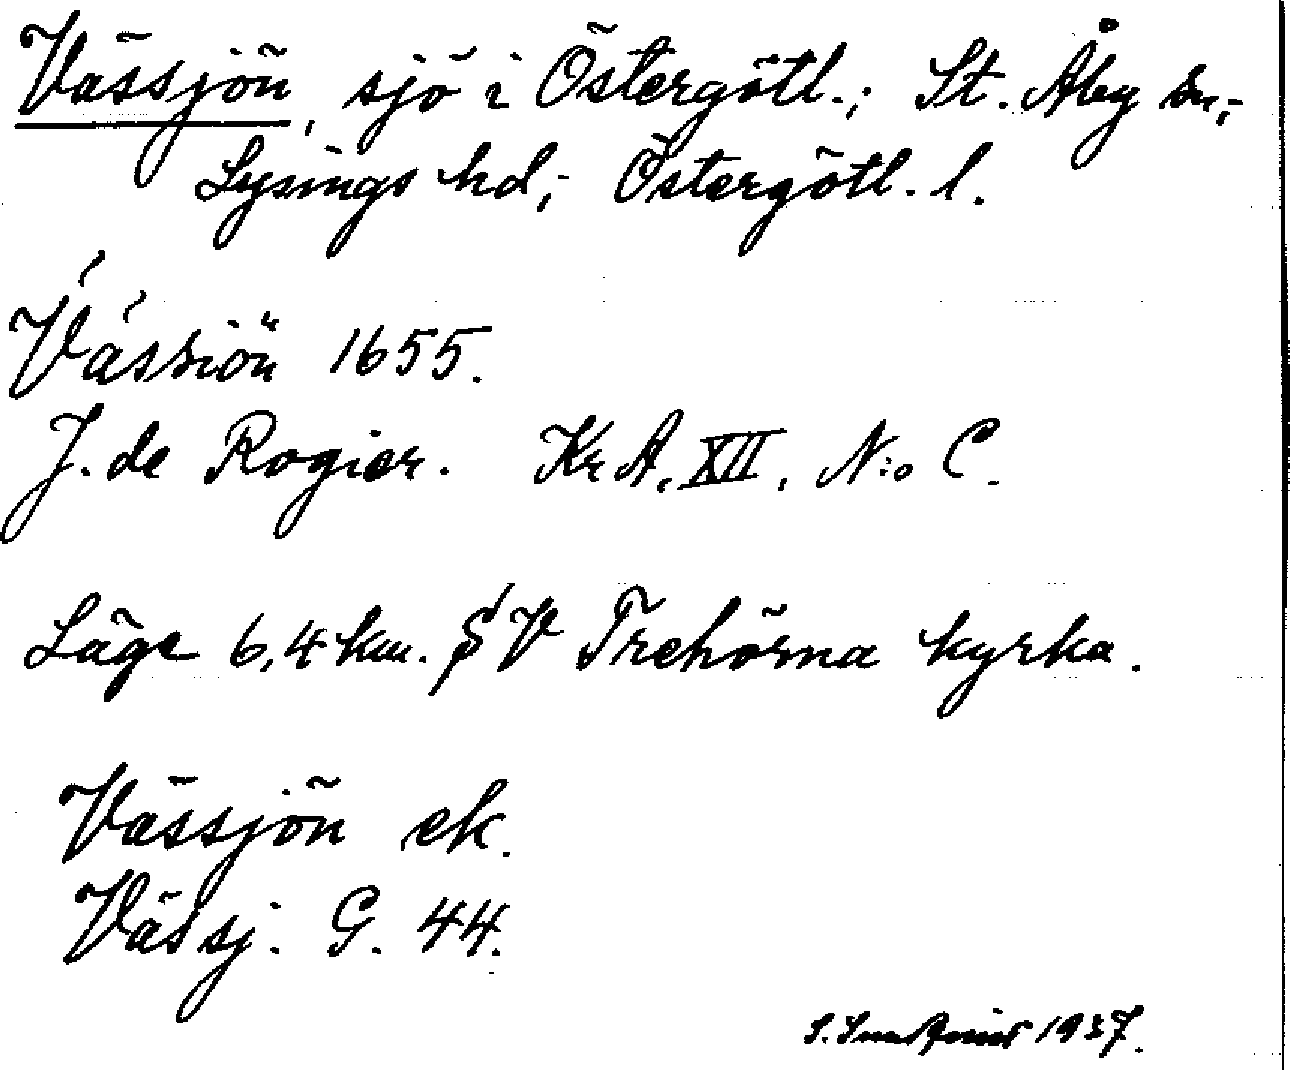 Vässjön, sjö i Östergötl.; St. Åby sn;
Lysings hd; Östergötl. l.
Vässiön 1655.
J. de Rogier. KrA, XII, N:o C.
Läge 6,4 km. SV Trehörna kyrka.
Vässjön ek.
Vässj. G. 44.
S. 1937.